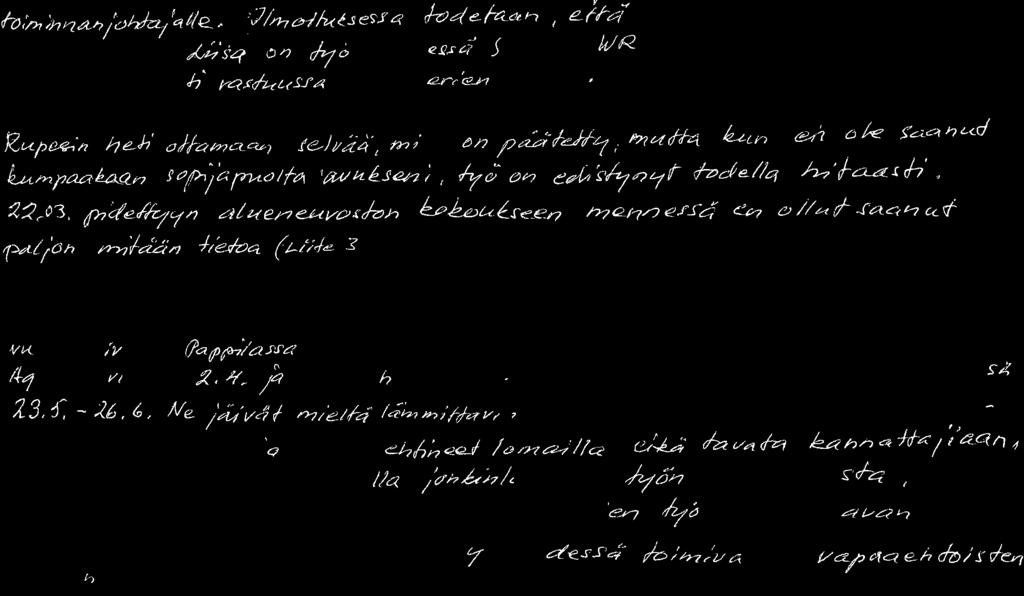 toiminnanjohtajalle. Ilmoituksessa todetaan, että
Liisa on työ essä S WR
ti vastuussa erien .
Rupesin heti ottamaan selvää, mi on päätetty, mutta kun en ole saanut
kumpaakaan sopijapuolta avukseni, työ on edistynyt todella hitaasti.
22.03. pidettyyn alueneuvoston kokoukseen mennessä en ollut saanut
paljon mitään tietoa (Liite 3
vu iv Pappilassa
vi 2.4. ja h . sä
23.5. - 26.6. Ne jäivät mieltä lämmittävi
a ehtineet lomailla eikä tavata kannattajiaan,
lla jonkinl työn sta,
en työ avan
y dessä toimiva vapaaehtoisten
n